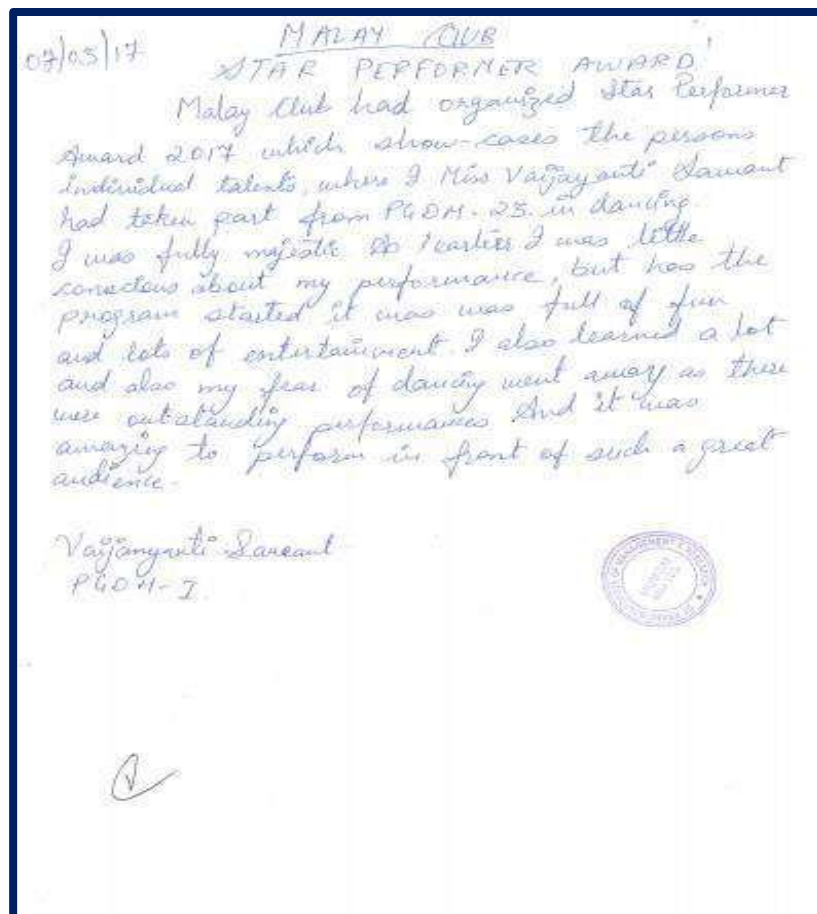 07/03/17
MALAY CLUB
STAR PERFORMER AWARD
Malay Club had organized Star Performer
Award 2017 which show-cases the persons
individual talents, where I Miss Vaijayanti Sawant
had taken part from PGDM-25. in dancing
I was fully majestic As earlier I was little
conscious about my performance, but has the
program started it was was full of fun
and lots of entertainment. I also learned a lot
and also my fear of dancing went away as there
were outstanding performances And it was
amazing to perform in front of such a great
audience.
Vaijanyanti Sawant
PGDM-I.
OF MANAGEMENT & RESEARCH